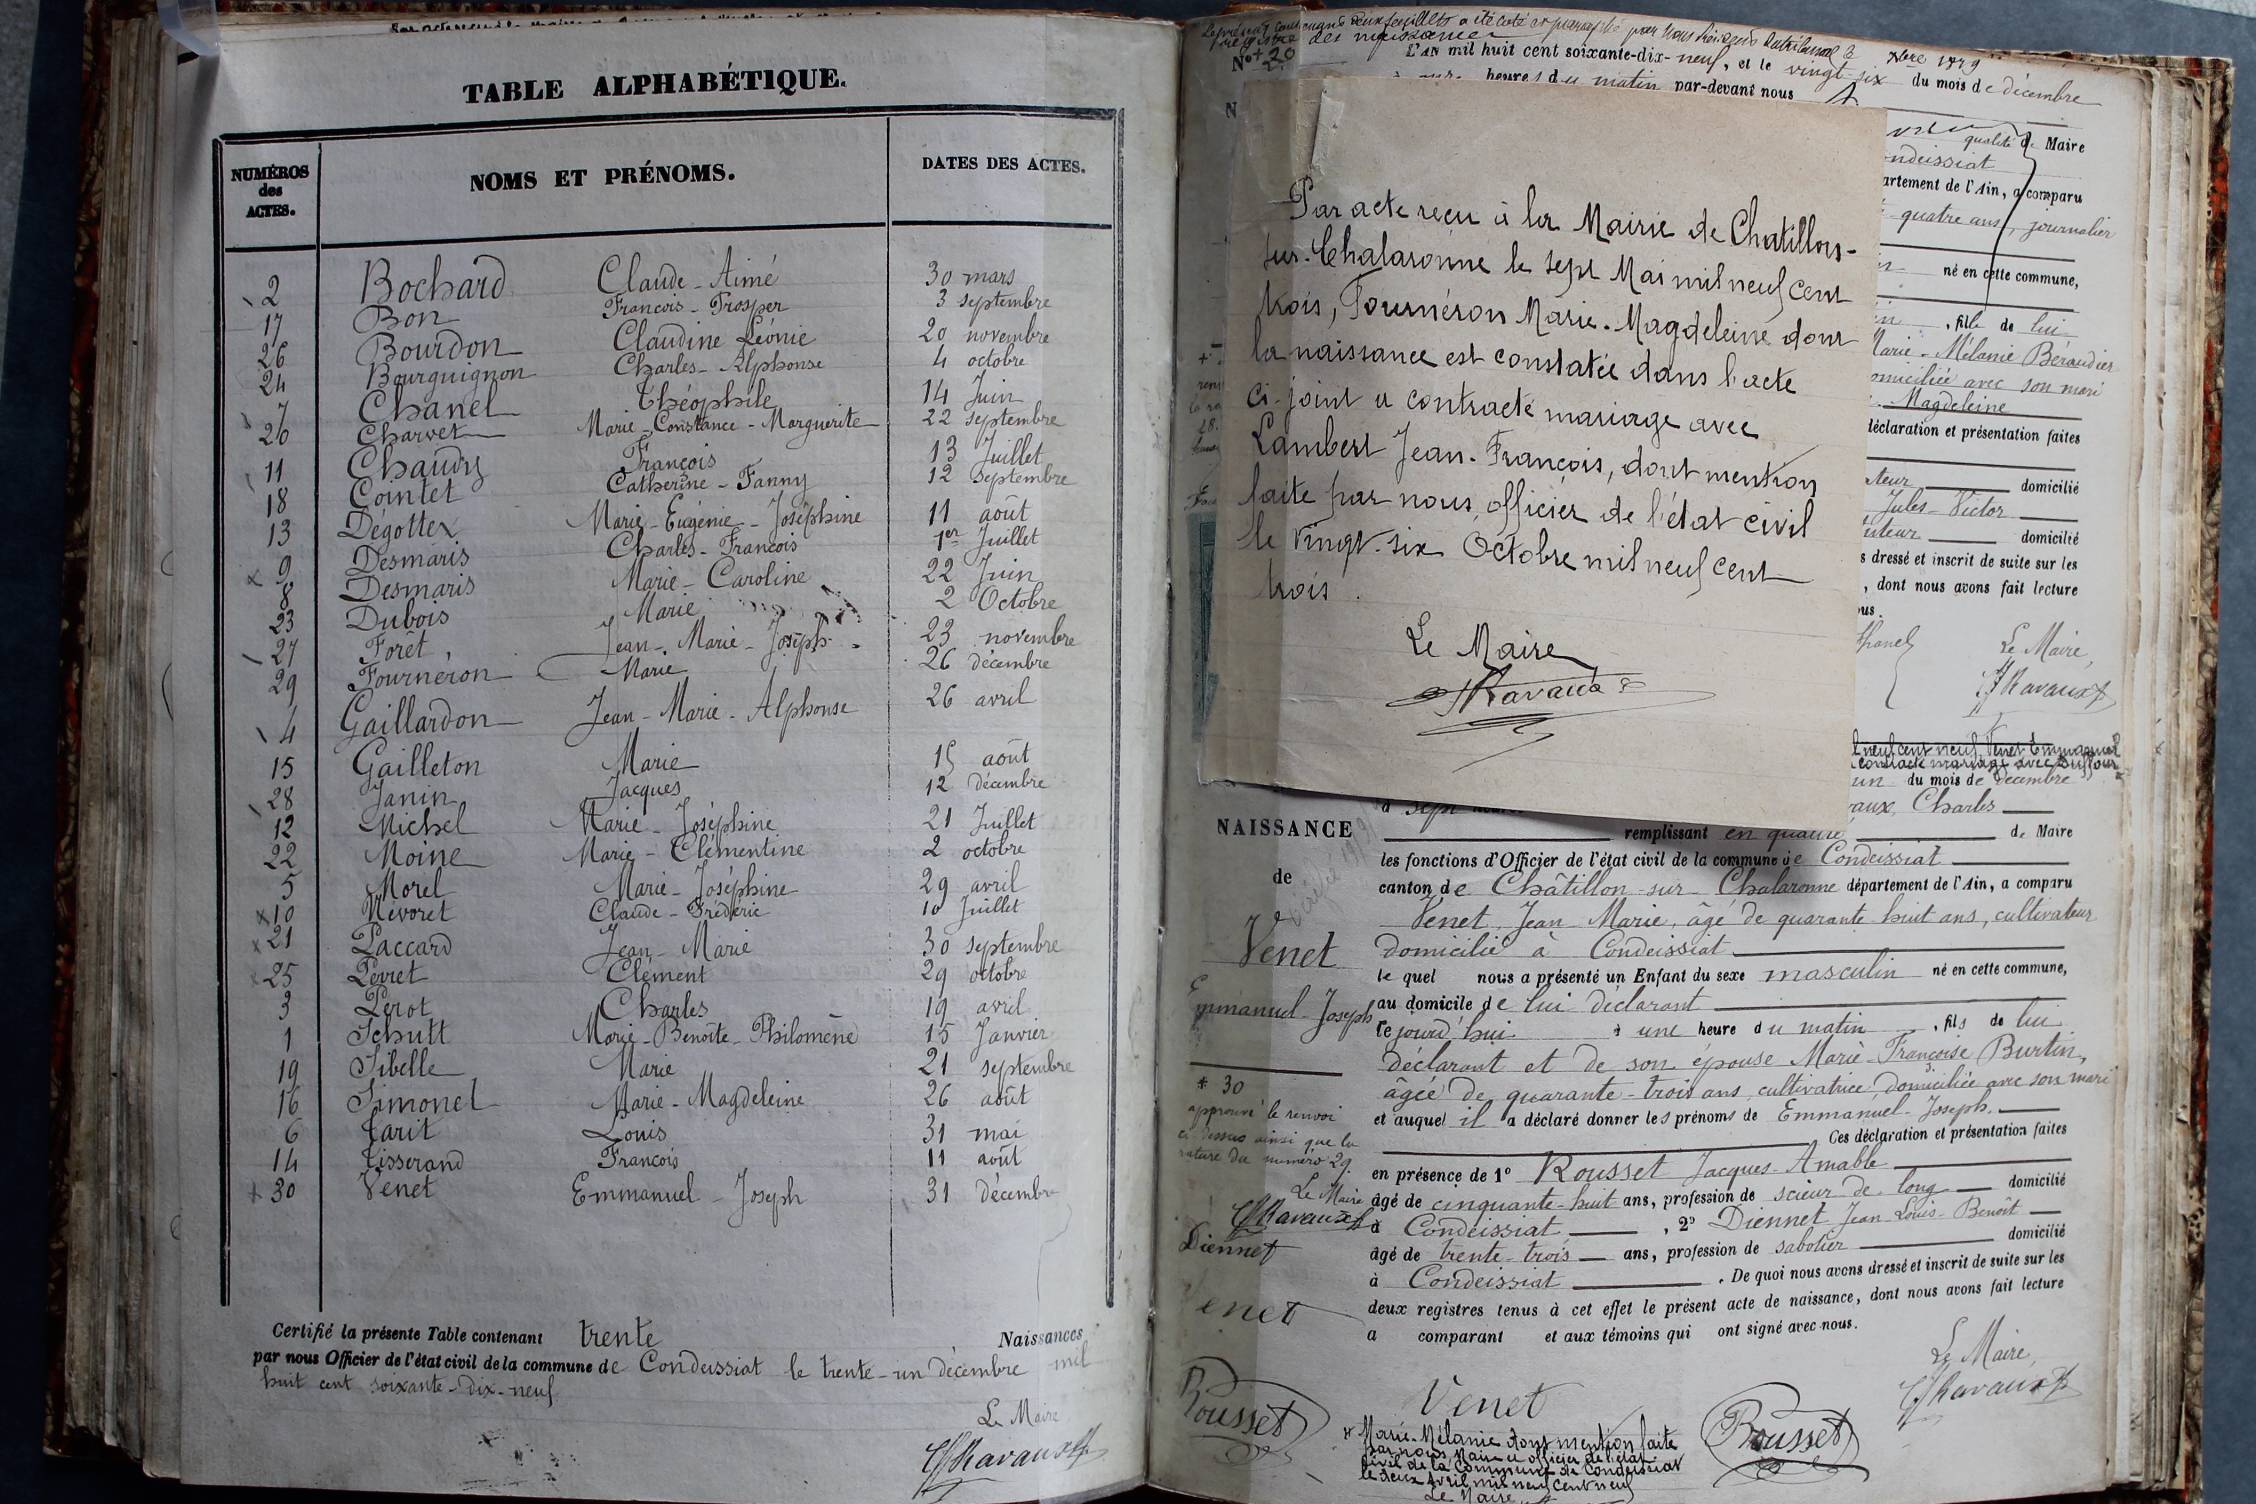 TABLE ALPHABÉTIQUE.
NUMÉROS des ACTES.
NOMS ET PRÉNOMS.
DATES DES ACTES.
2 Bochard Claude-Aimé 30 mars
17 Bon François-Prosper 3 septembre
26 Bourdon Claudine Léonie 20 novembre
24 Bourguignon Charles-Alphonse 4 octobre
7 Chanel Théophile 14 Juin
20 Charvet Marie-Constance-Marguerite 22 septembre
11 Chaudy François 13 Juillet
18 Cointet Catherine-Fanny 12 septembre
13 Dégottex Marie-Eugénie-Joséphine 11 août
9 Desmaris Charles-François 1er Juillet
8 Desmaris Marie-Caroline 22 Juin
23 Dubois Marie 2 Octobre
27 Forêt Jean-Marie-Joseph 23 novembre
29 Fournéron Marie 26 décembre
4 Gaillardon Jean-Marie-Alphonse 26 avril
15 Gailleton Marie 15 août
28 Janin Jacques 12 décembre
12 Michel Marie-Joséphine 21 Juillet
22 Moine Marie-Clémentine 2 octobre
5 Morel Marie-Joséphine 29 avril
10 Nevoret Claude-Frédéric 10 Juillet
21 Paccard Jean-Marie 30 septembre
25 Pevret Clément 29 octobre
3 Perot Charles 19 avril
1 Schutt Marie-Benoîte-Philomène 15 Janvier
19 Sibelle Marie 21 septembre
16 Simonel Marie-Magdeleine 26 août
6 Tarit Louis 31 mai
14 Tisserand François 11 août
30 Venet Emmanuel-Joseph 31 décembre
Certifié la présente Table contenant trente Naissances
par nous Officier de l'état civil de la commune de Condeissiat le trente-un décembre mil
huit cent soixante-dix-neuf
Le Maire
Ravaux
L'AN mil huit cent soixante-dix-neuf, et le vingt-six du mois de décembre
heures du matin par-devant nous
qualité de Maire
ndeissiat
artement de l'Ain, a comparu
quatre ans, journalier
né en cette commune,
, fille de lui
Marie-Mélanie Béraudier
omiciliée avec son mari
Magdeleine
déclaration et présentation faites
teur domicilié
Jules-Victor
domicilié
s dressé et inscrit de suite sur les
, dont nous avons fait lecture
Le Maire,
Ravaux
Par acte reçu à la Mairie de Chatillon-
sur-Chalaronne le sept Mai mil neuf cent
trois, Fournéron Marie-Magdeleine dont
la naissance est constatée dans l'acte
ci-joint a contracté mariage avec
Lambert Jean-François, dont mention
faite par nous, officier de l'état civil
le vingt-six Octobre mil neuf cent
trois.
Le Maire
Ravaux
l neuf cent neuf Venet Emmanuel
contracté mariage avec Duffour
un du mois de décembre
vaux, Charles
remplissant en qualité de Maire
les fonctions d'Officier de l'état civil de la commune de Condeissiat
canton de Châtillon-sur-Chalaronne département de l'Ain, a comparu
Venet, Jean Marie, âgé de quarante huit ans, cultivateur
domicilié à Condeissiat
le quel nous a présenté un Enfant du sexe masculin né en cette commune,
au domicile de lui déclarant
cejourd'hui à une heure du matin, fils de lui
déclarant et de son épouse Marie-Françoise Burtin,
âgée de quarante-trois ans, cultivatrice, domiciliée avec son mari
et auquel il a déclaré donner les prénoms de Emmanuel-Joseph.
Ces déclaration et présentation faites
en présence de 1° Rousset Jacques-Amable
âgé de cinquante-huit ans, profession de scieur de long domicilié
à Condeissiat, 2° Diennet Jean-Louis-Benoît
âgé de trente-trois ans, profession de sabotier domicilié
à Condeissiat. De quoi nous avons dressé et inscrit de suite sur les
deux registres tenus à cet effet le présent acte de naissance, dont nous avons fait lecture
a comparant et aux témoins qui ont signé avec nous.
NAISSANCE
de
Venet
Emmanuel-Joseph
30
approuvé le renvoi
ci-dessus ainsi que la
rature du numéro 29.
Le Maire
Ravaux
Diennet
Venet
Rousset
Venet
Rousset
Le Maire,
Ravaux
Marie-Mélanie dont mention faite
par nous Maire et officier de l'état
civil de la Commune de Condeissiat
le deux Avril mil neuf cent neuf
Le Maire